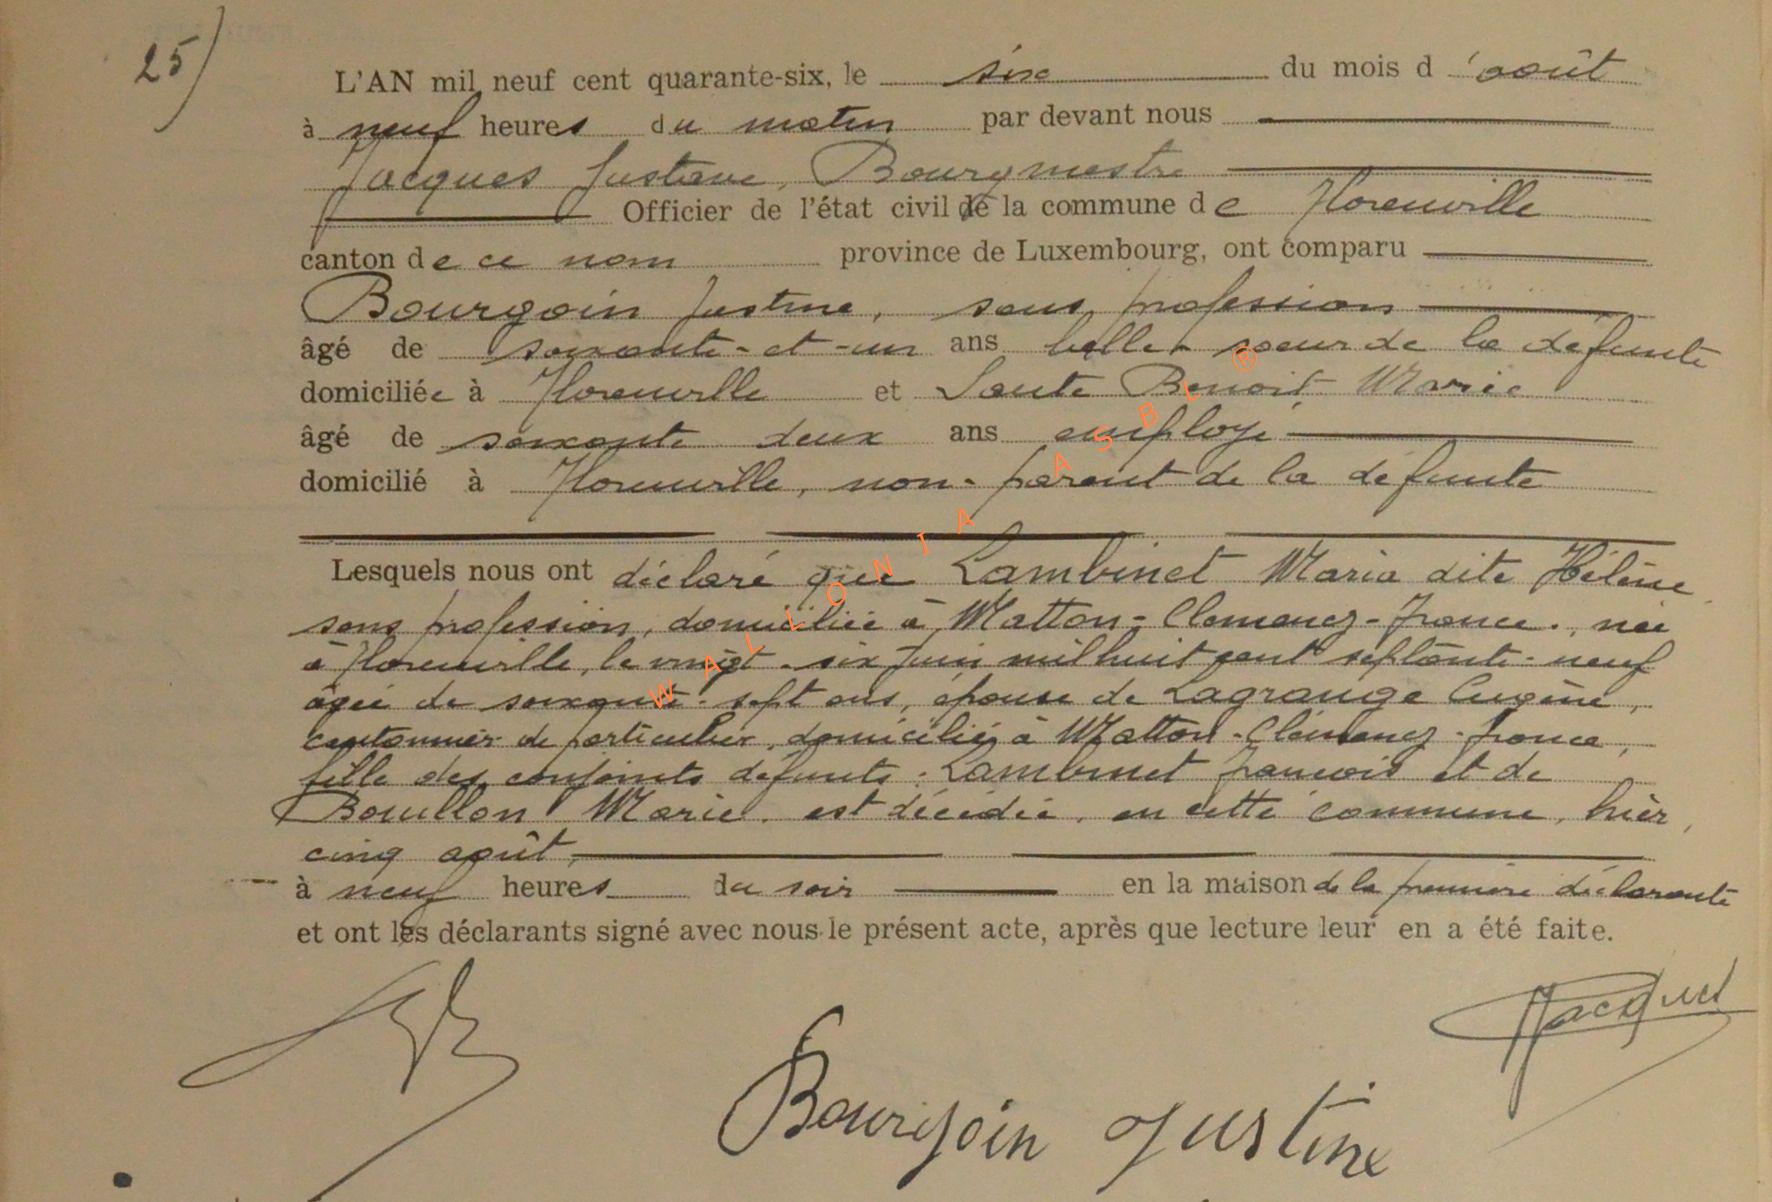 25)
L'AN mil neuf cent quarante-six, le six du mois d'août
à neuf heures du matin par devant nous
Jacques Gustave, Bourgmestre
Officier de l'état civil de la commune de Florenville
canton de ce nom province de Luxembourg, ont comparu
Bourgoin Justine, sans profession
âgé de soixante-et-un ans belle-soeur de la défunte
domiciliée à Florenville et Laute Benoit Marie
âgé de soixante deux ans employé
domicilié à Florenville, non-parent de la défunte
Lesquels nous ont déclaré que Lambinet Maria dite Hélène
sans profession, domiciliée à Matton-Clemency-France, née
à Florenville, le vingt-six Juin mil huit cent septante-neuf
âgée de soixante-sept ans, épouse de Lagrange Eugène,
cantonnier de particulier, domicilié à Matton-Clémency-France,
fille des conjoints défunts: Lambinet François et de
Bouillon Marie. est décédée, en cette commune, hier,
cinq août,
à neuf heures du soir en la maison de la première déclarante
et ont les déclarants signé avec nous le présent acte, après que lecture leur en a été faite.
Jacques
Bourgoin Justine
WALLONIA ASBL ®